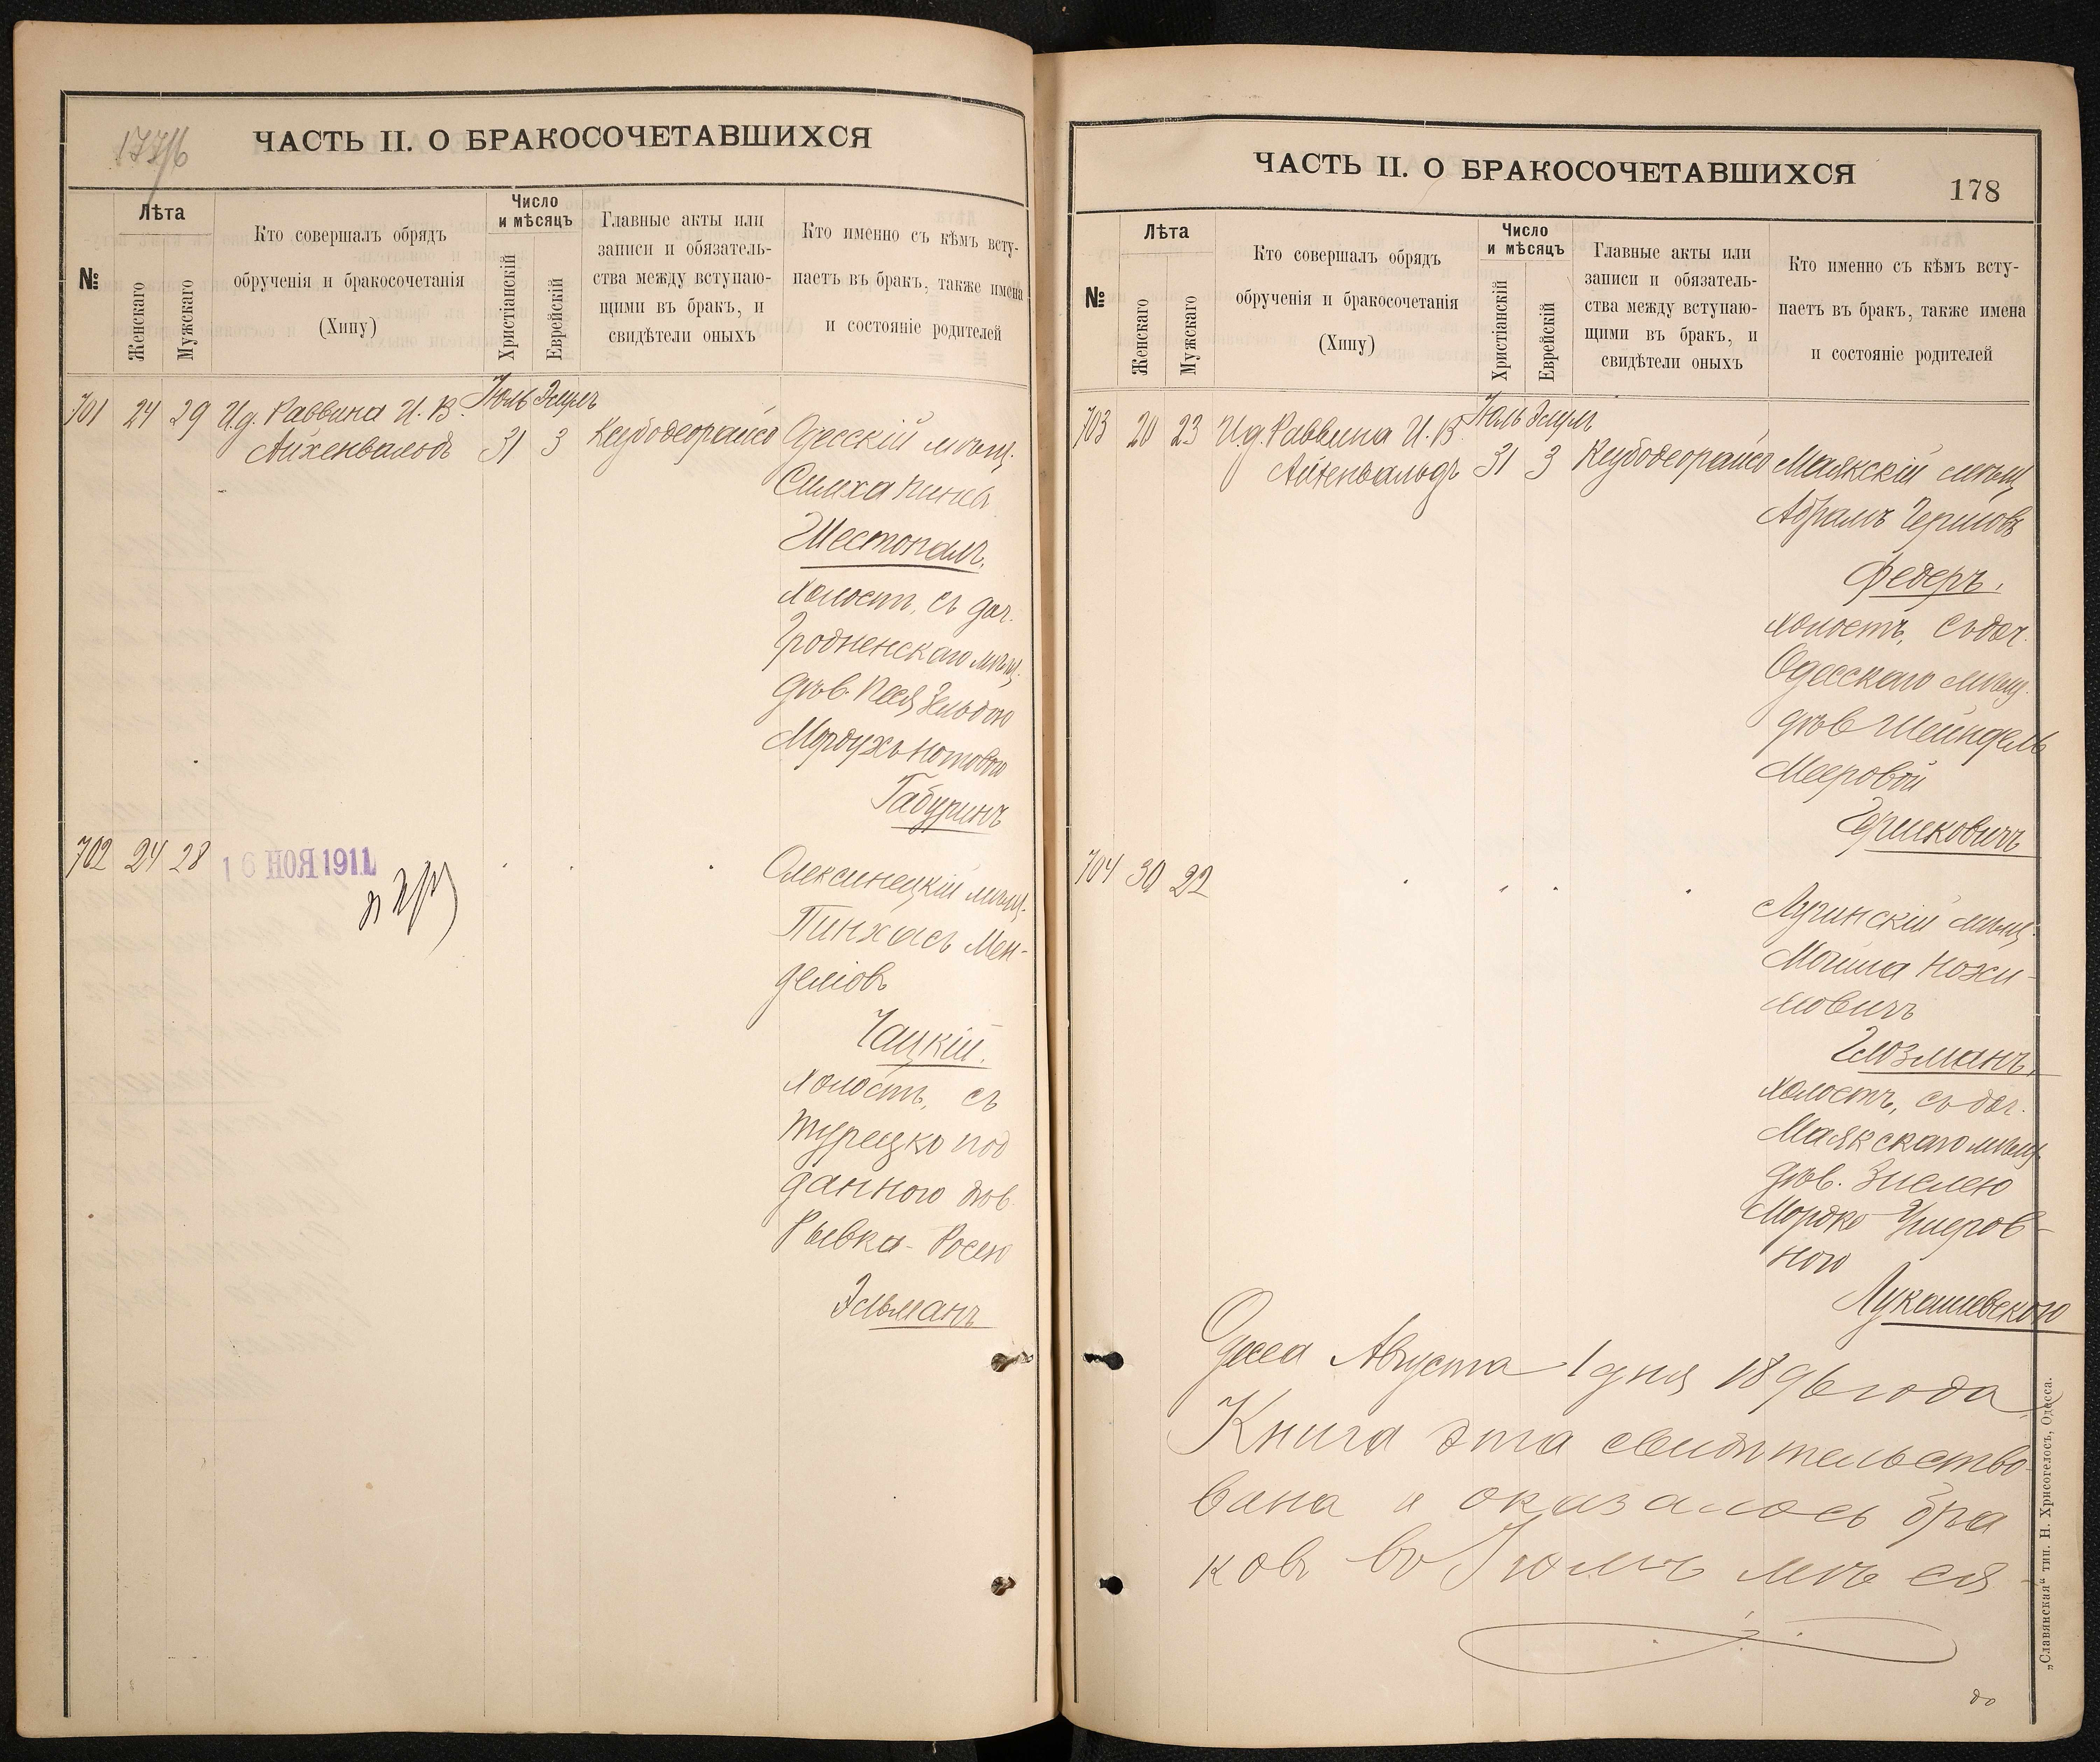 177/б
ЧАСТЬ II. О БРАКОСОЧЕТАВШИХСЯ
№
Лѣта
Женскаго
Мужскаго
Кто совершалъ обрядъ
обрученія и бракосочетанія
(Хипу)
Число
и мѣсяцъ
Христіанскій
Еврейскій
Главные акты или
записи и обязатель-
ства между вступаю-
щими въ бракъ, и
свидѣтели оныхъ
Кто именно съ кѣмъ всту-
паетъ въ бракъ, также имена
и состояніе родителей
701 24 29 И.д. Раввина И. В.
Айхенвальдъ
Іюль Элулъ
31 3
Одесскій мѣщ.
Симха
Шестопалъ,
холостъ, съ доч.
Гродненскаго мѣщ.
дѣв. Песя Зельдою
Мордухъ Нотовою
Габуринъ
702 24 28
16 НОЯ 1911
Олексинецкій мѣщ.
Пинхасъ Мен-
делювъ
Чацкій.
холостъ, съ
турецко под
даннаго дѣв
Рывка-Росею
Эльманъ
ЧАСТЬ II. О БРАКОСОЧЕТАВШИХСЯ
178
№
Лѣта
Женскаго
Мужскаго
Кто совершалъ обрядъ
обрученія и бракосочетанія
(Хипу)
Число
и мѣсяцъ
Христіанскій
Еврейскій
Главные акты или
записи и обязатель-
ства между вступаю-
щими въ бракъ, и
свидѣтели оныхъ
Кто именно съ кѣмъ всту-
паетъ въ бракъ, также имена
и состояніе родителей
703 20 23 И.д. Раввина И. В.
Айхенвальдъ
Іюль Элулъ
31 3
Маякскій мѣщ
Абрамъ Гершовъ
Федеръ,
холостъ, съ доч.
Одесскаго мѣщ.
дѣв Шейндель
Мееровой
Гершковичъ
704 30 22
Лугинскій мѣщ.
Мошка
мовичъ
Глозманъ,
холостъ, съ доч.
Маякскаго мѣщ
дѣв. Зислею
Мордко Ушеров-
ною
Лукашевскою
Одесса Августа 1 дня 1896 года
Книга эта свидѣтельство-
вана и оказалось бра
ковъ въ Іюлѣ мѣ ся-
до
„Славянская“ тип. Н. Хрисогелосъ, Одесса.